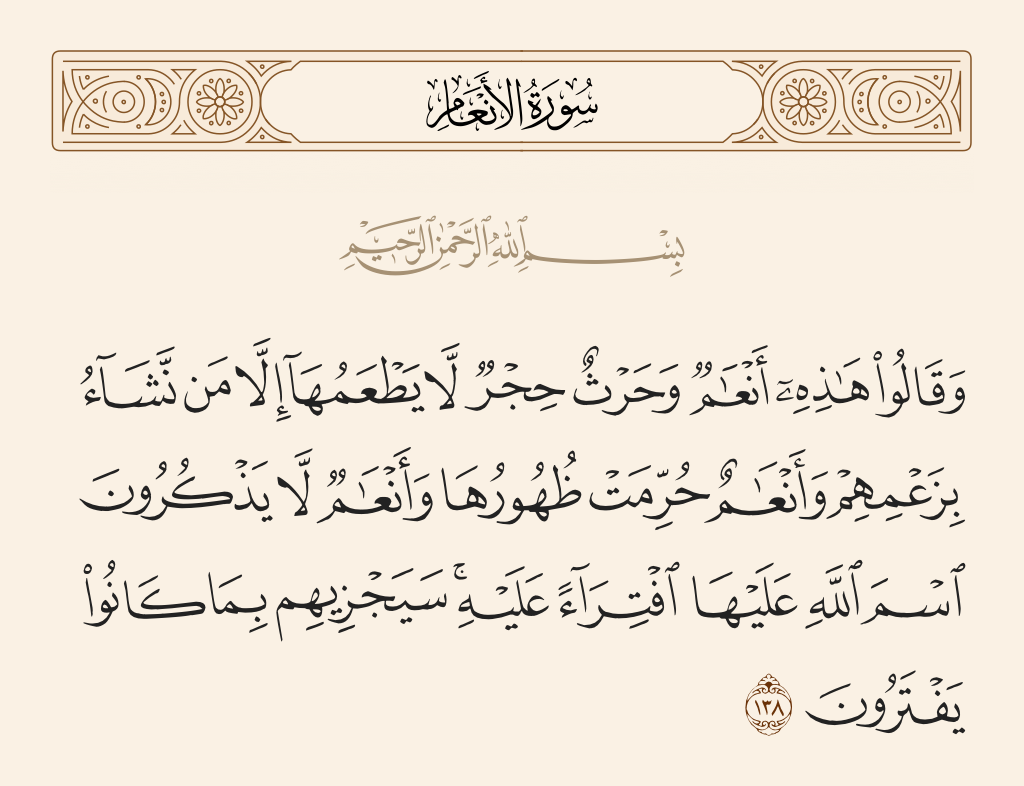 سُورَةُ الأَنْعَامِ
بِسْمِ ٱللَّهِ ٱلرَّحْمَٰنِ ٱلرَّحِيمِ
وَقَالُوا۟ هَـٰذِهِۦٓ أَنْعَـٰمٌۭ وَحَرْثٌ حِجْرٌۭ لَّا يَطْعَمُهَآ إِلَّا مَن نَّشَآءُ
بِزَعْمِهِمْ وَأَنْعَـٰمٌ حُرِّمَتْ ظُهُورُهَا وَأَنْعَـٰمٌۭ لَّا يَذْكُرُونَ
ٱسْمَ ٱللَّهِ عَلَيْهَا ٱفْتِرَآءً عَلَيْهِ ۚ سَيَجْزِيهِم بِمَا كَانُوا۟
يَفْتَرُونَ ١٣٨